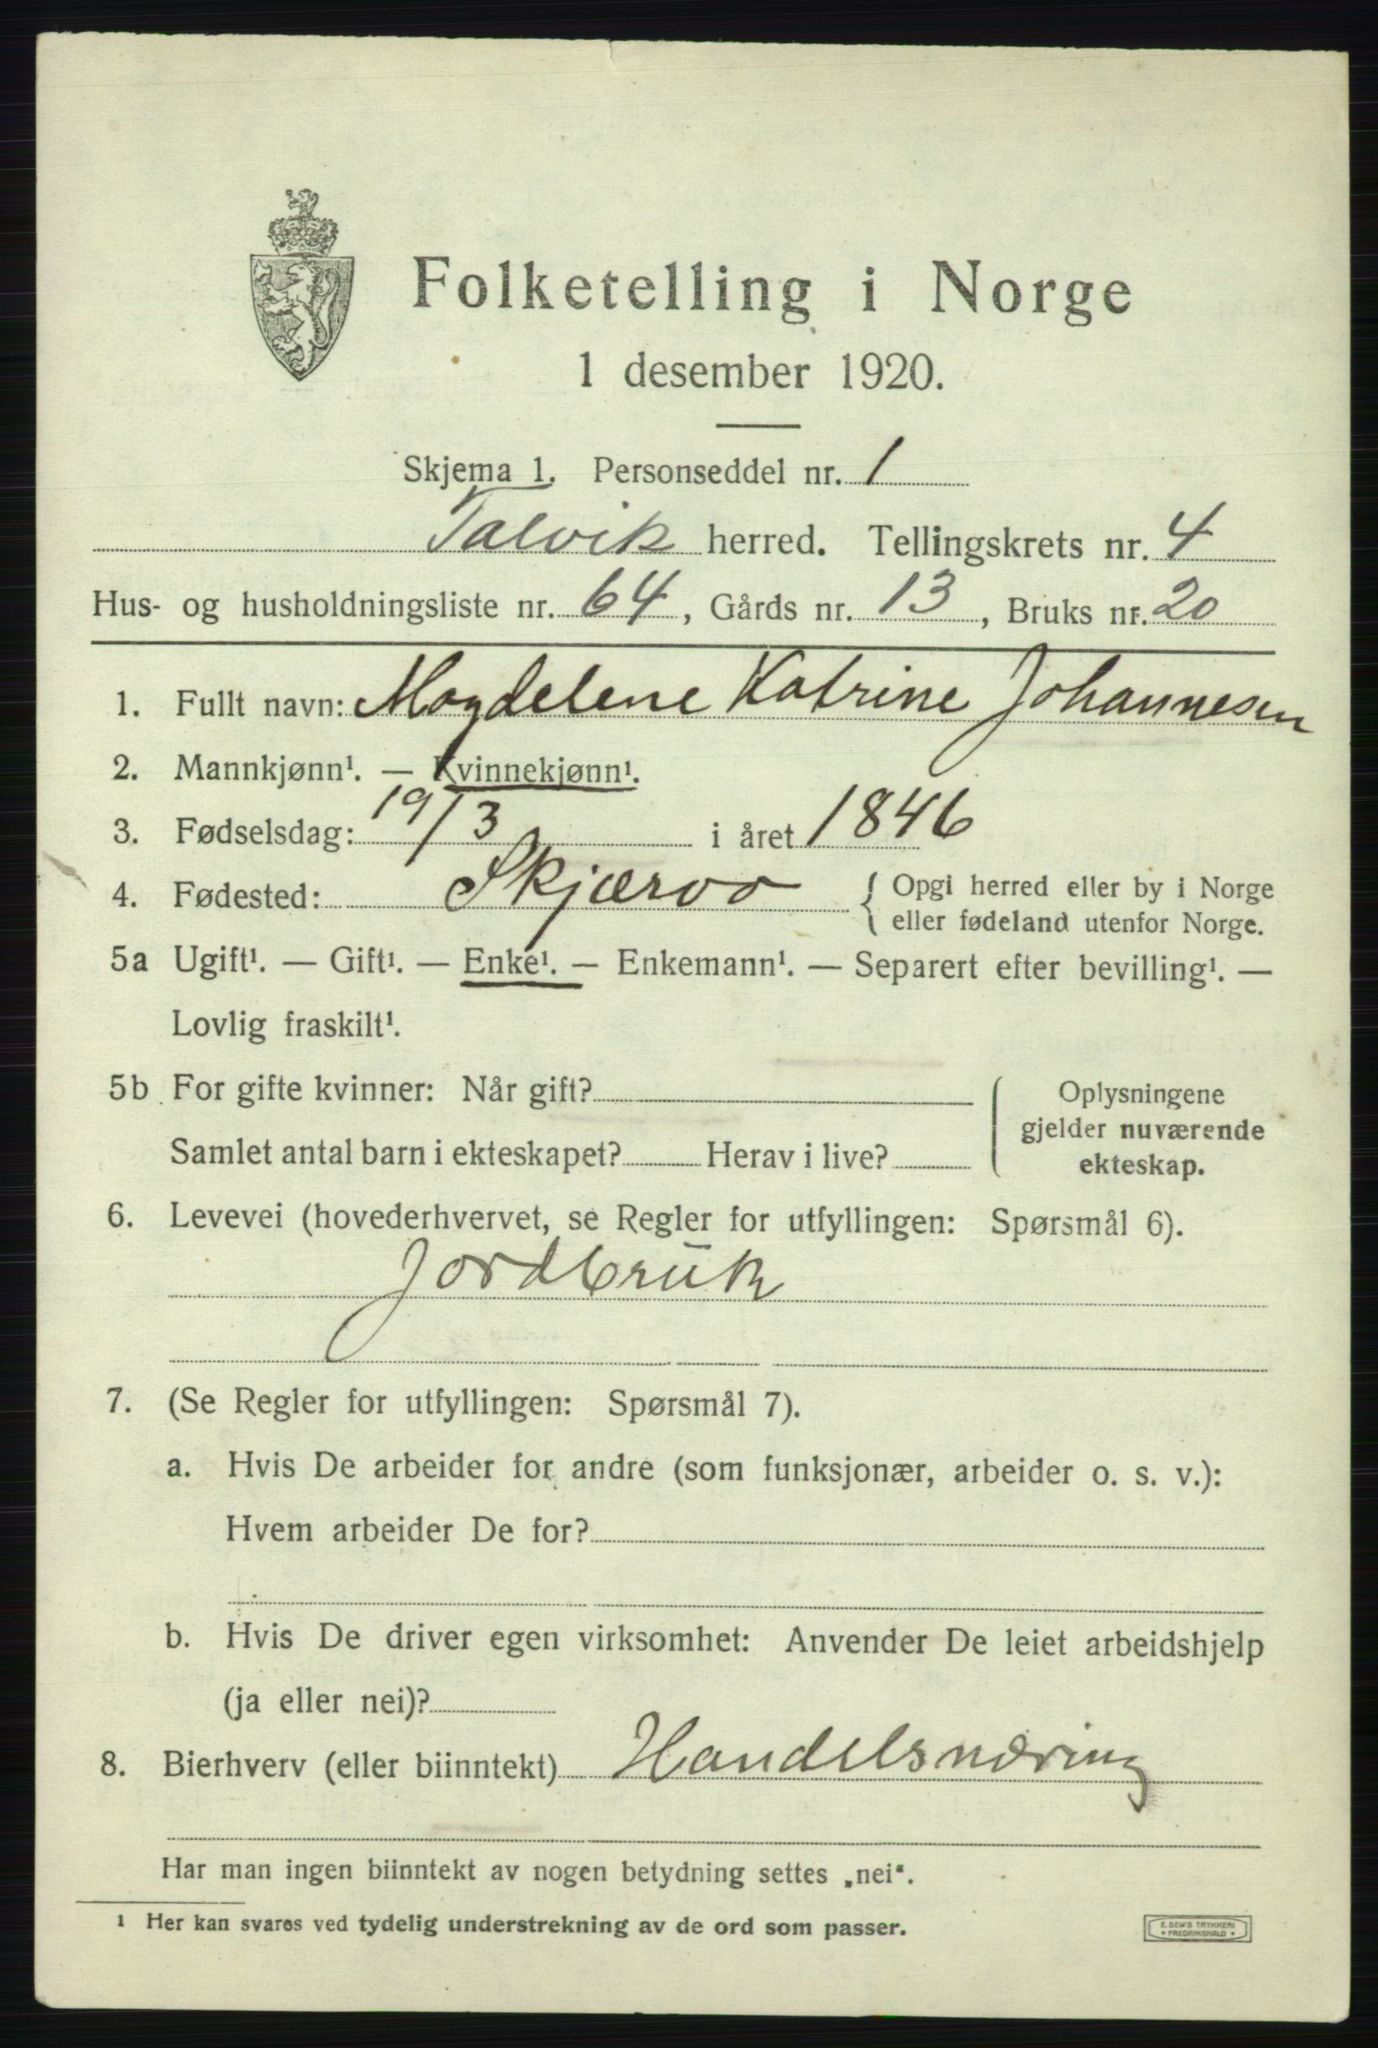 Folketelling i Norge
1 desember 1920.
Skjema 1. Personseddel nr. 1
Talvik herred. Tellingskrets nr. 4
Hus- og husholdningsliste nr. 64, Gårds nr. 13, Bruks nr. 20
1. Fullt navn: Magdelene Katrine Johannesen
2. Mannkjønn¹. — Kvinnekjønn¹.
3. Fødselsdag: 19/3 i året 1846
4. Fødested: Skjærvø { Opgi herred eller by i Norge
eller fødeland utenfor Norge.
5a Ugift¹. — Gift¹. — Enke¹. — Enkemann¹. — Separert efter bevilling¹. —
Lovlig fraskilt¹.
5b For gifte kvinner: Når gift?
Samlet antal barn i ekteskapet? Herav i live?
Oplysningene
gjelder nuværende
ekteskap.
6. Levevei (hovederhvervet, se Regler for utfyllingen: Spørsmål 6).
Jordbruk
7. (Se Regler for utfyllingen: Spørsmål 7).
a. Hvis De arbeider for andre (som funksjonær, arbeider o. s. v.):
Hvem arbeider De for?
b. Hvis De driver egen virksomhet: Anvender De leiet arbeidshjelp
(ja eller nei)?
8. Bierhverv (eller biinntekt) Handelsnæring
Har man ingen biinntekt av nogen betydning settes „nei“.
¹ Her kan svares ved tydelig understrekning av de ord som passer.
E. SEM'S TRYKKERI
* FREDRIKSHALD *